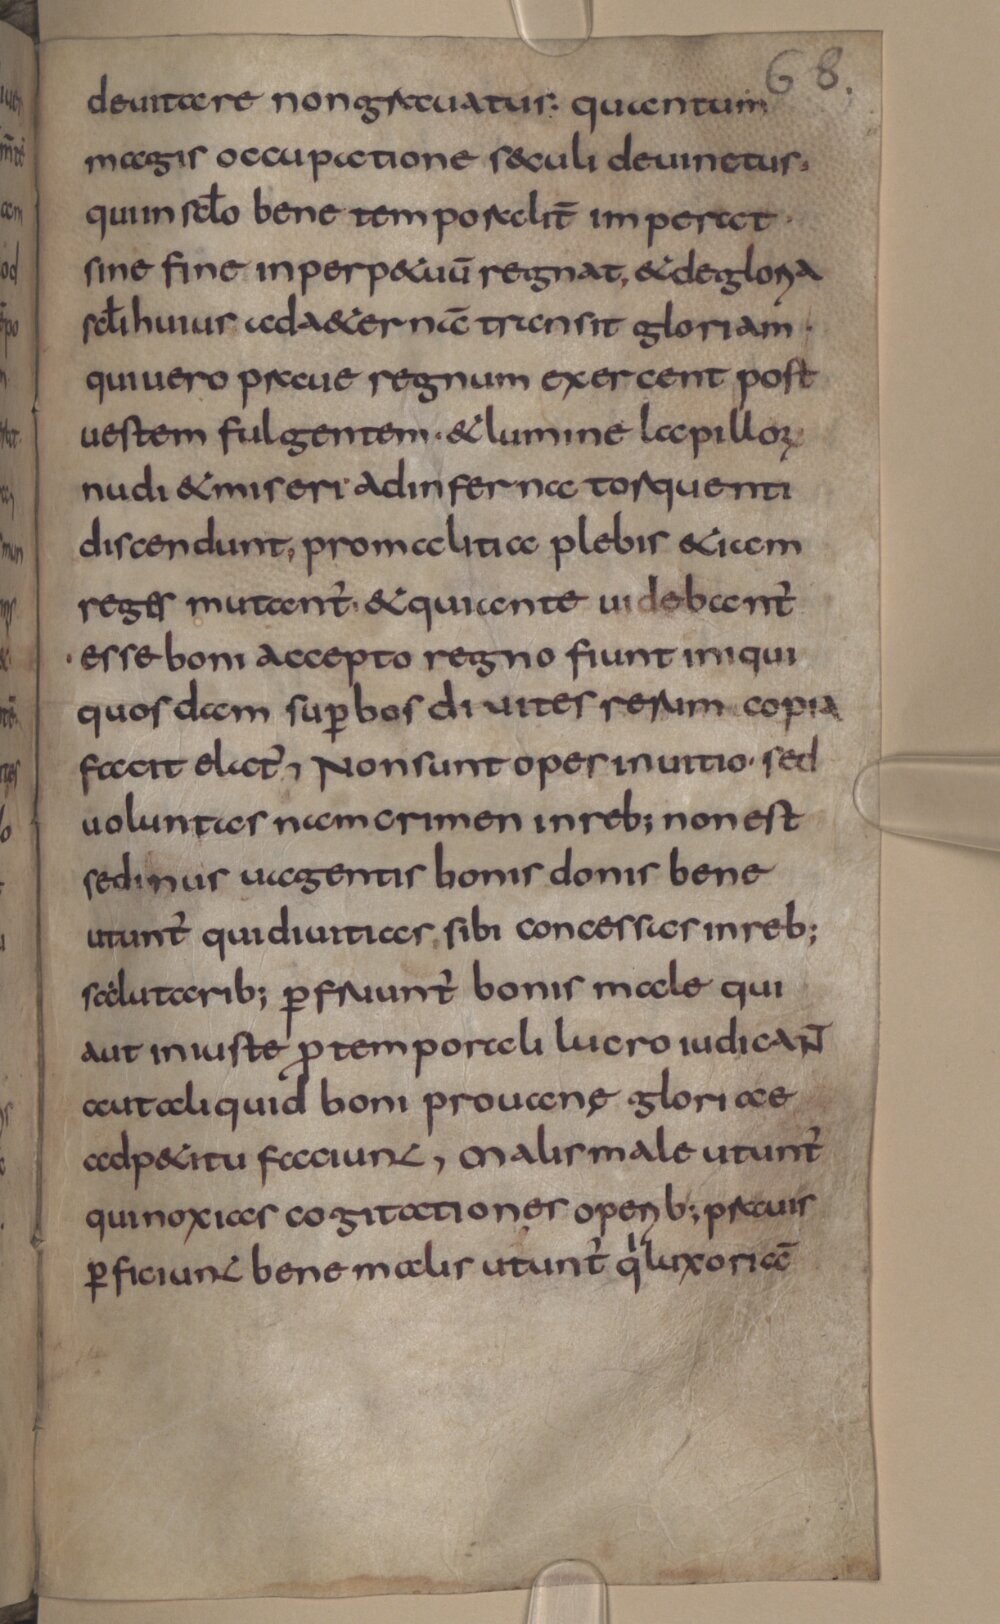 68.
deuitare non grauatur: quantum
magis occupatione s&culi deuinctus,
qui in sc̅lo bene temporalit̅ imperat ·
sine fine in perp&uū regnat, & de gloria
sc̅li huius ad a&ernā transit gloriam ·
qui uero praue regnum exercent post
uestem fulgentem · & lumine lapilloꝝ
nudi & miseri ad inferna torquenti
discendunt, pro malitia plebis &iam
reges mutant̉ · & qui ante uidebant̉
· esse boni accepto regno fiunt iniqui
quosdam suꝑbos diuites rerum copia
facit elat̉, Non sunt opes in uitio · sed
uoluntas nam crimen in reb; non est
sed in usu agentis bonis donis bene
utunt̉ qui diuitias sibi concessas in reb;
salutarib; ꝑfruunt̉ bonis male qui
aut iniuste ꝓ temporali lucro iudicaN̅
aut aliquid boni pro uane gloriae
adp&itu faciunt, Malis male utunt̉
qui noxias cogitationes operib; prauis
ꝑficiunt bene malis utunt̉ qͥ luxoriā